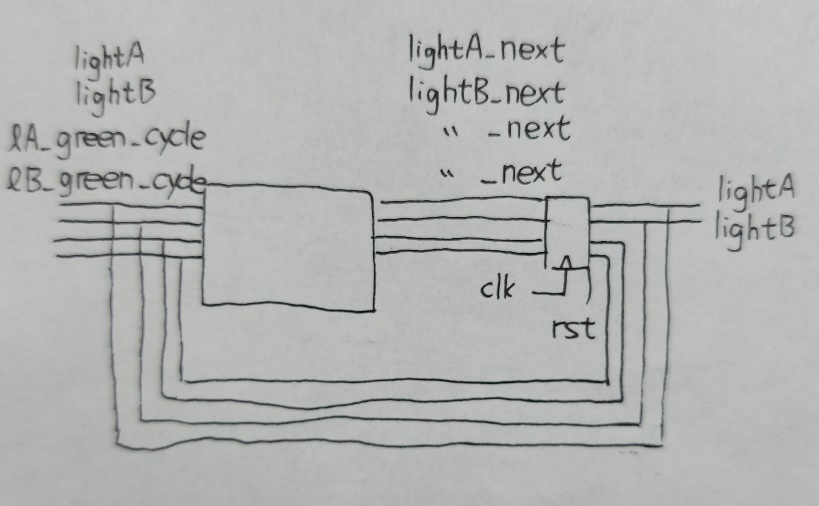 lightA
lightB
lA_green_cycle
lB_green_cycle
lightA_next
lightB_next
" _next
" _next
lightA
lightB
clk
rst